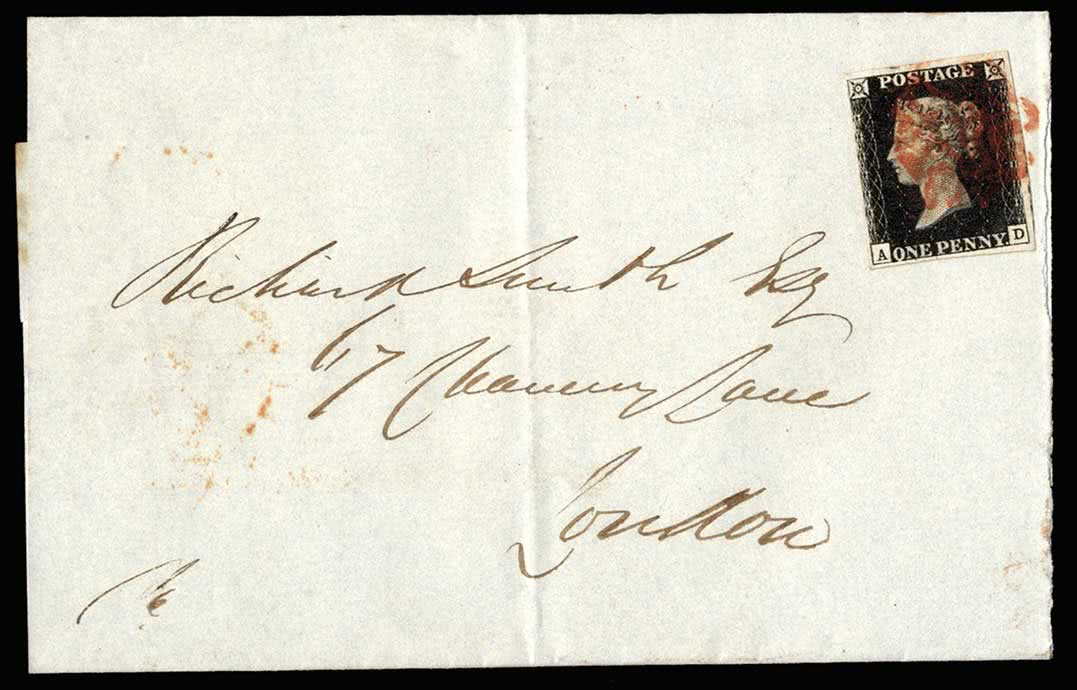 POSTAGE
A ONE PENNY. D
Richard Smith Esq
17 Chancery Lane
London